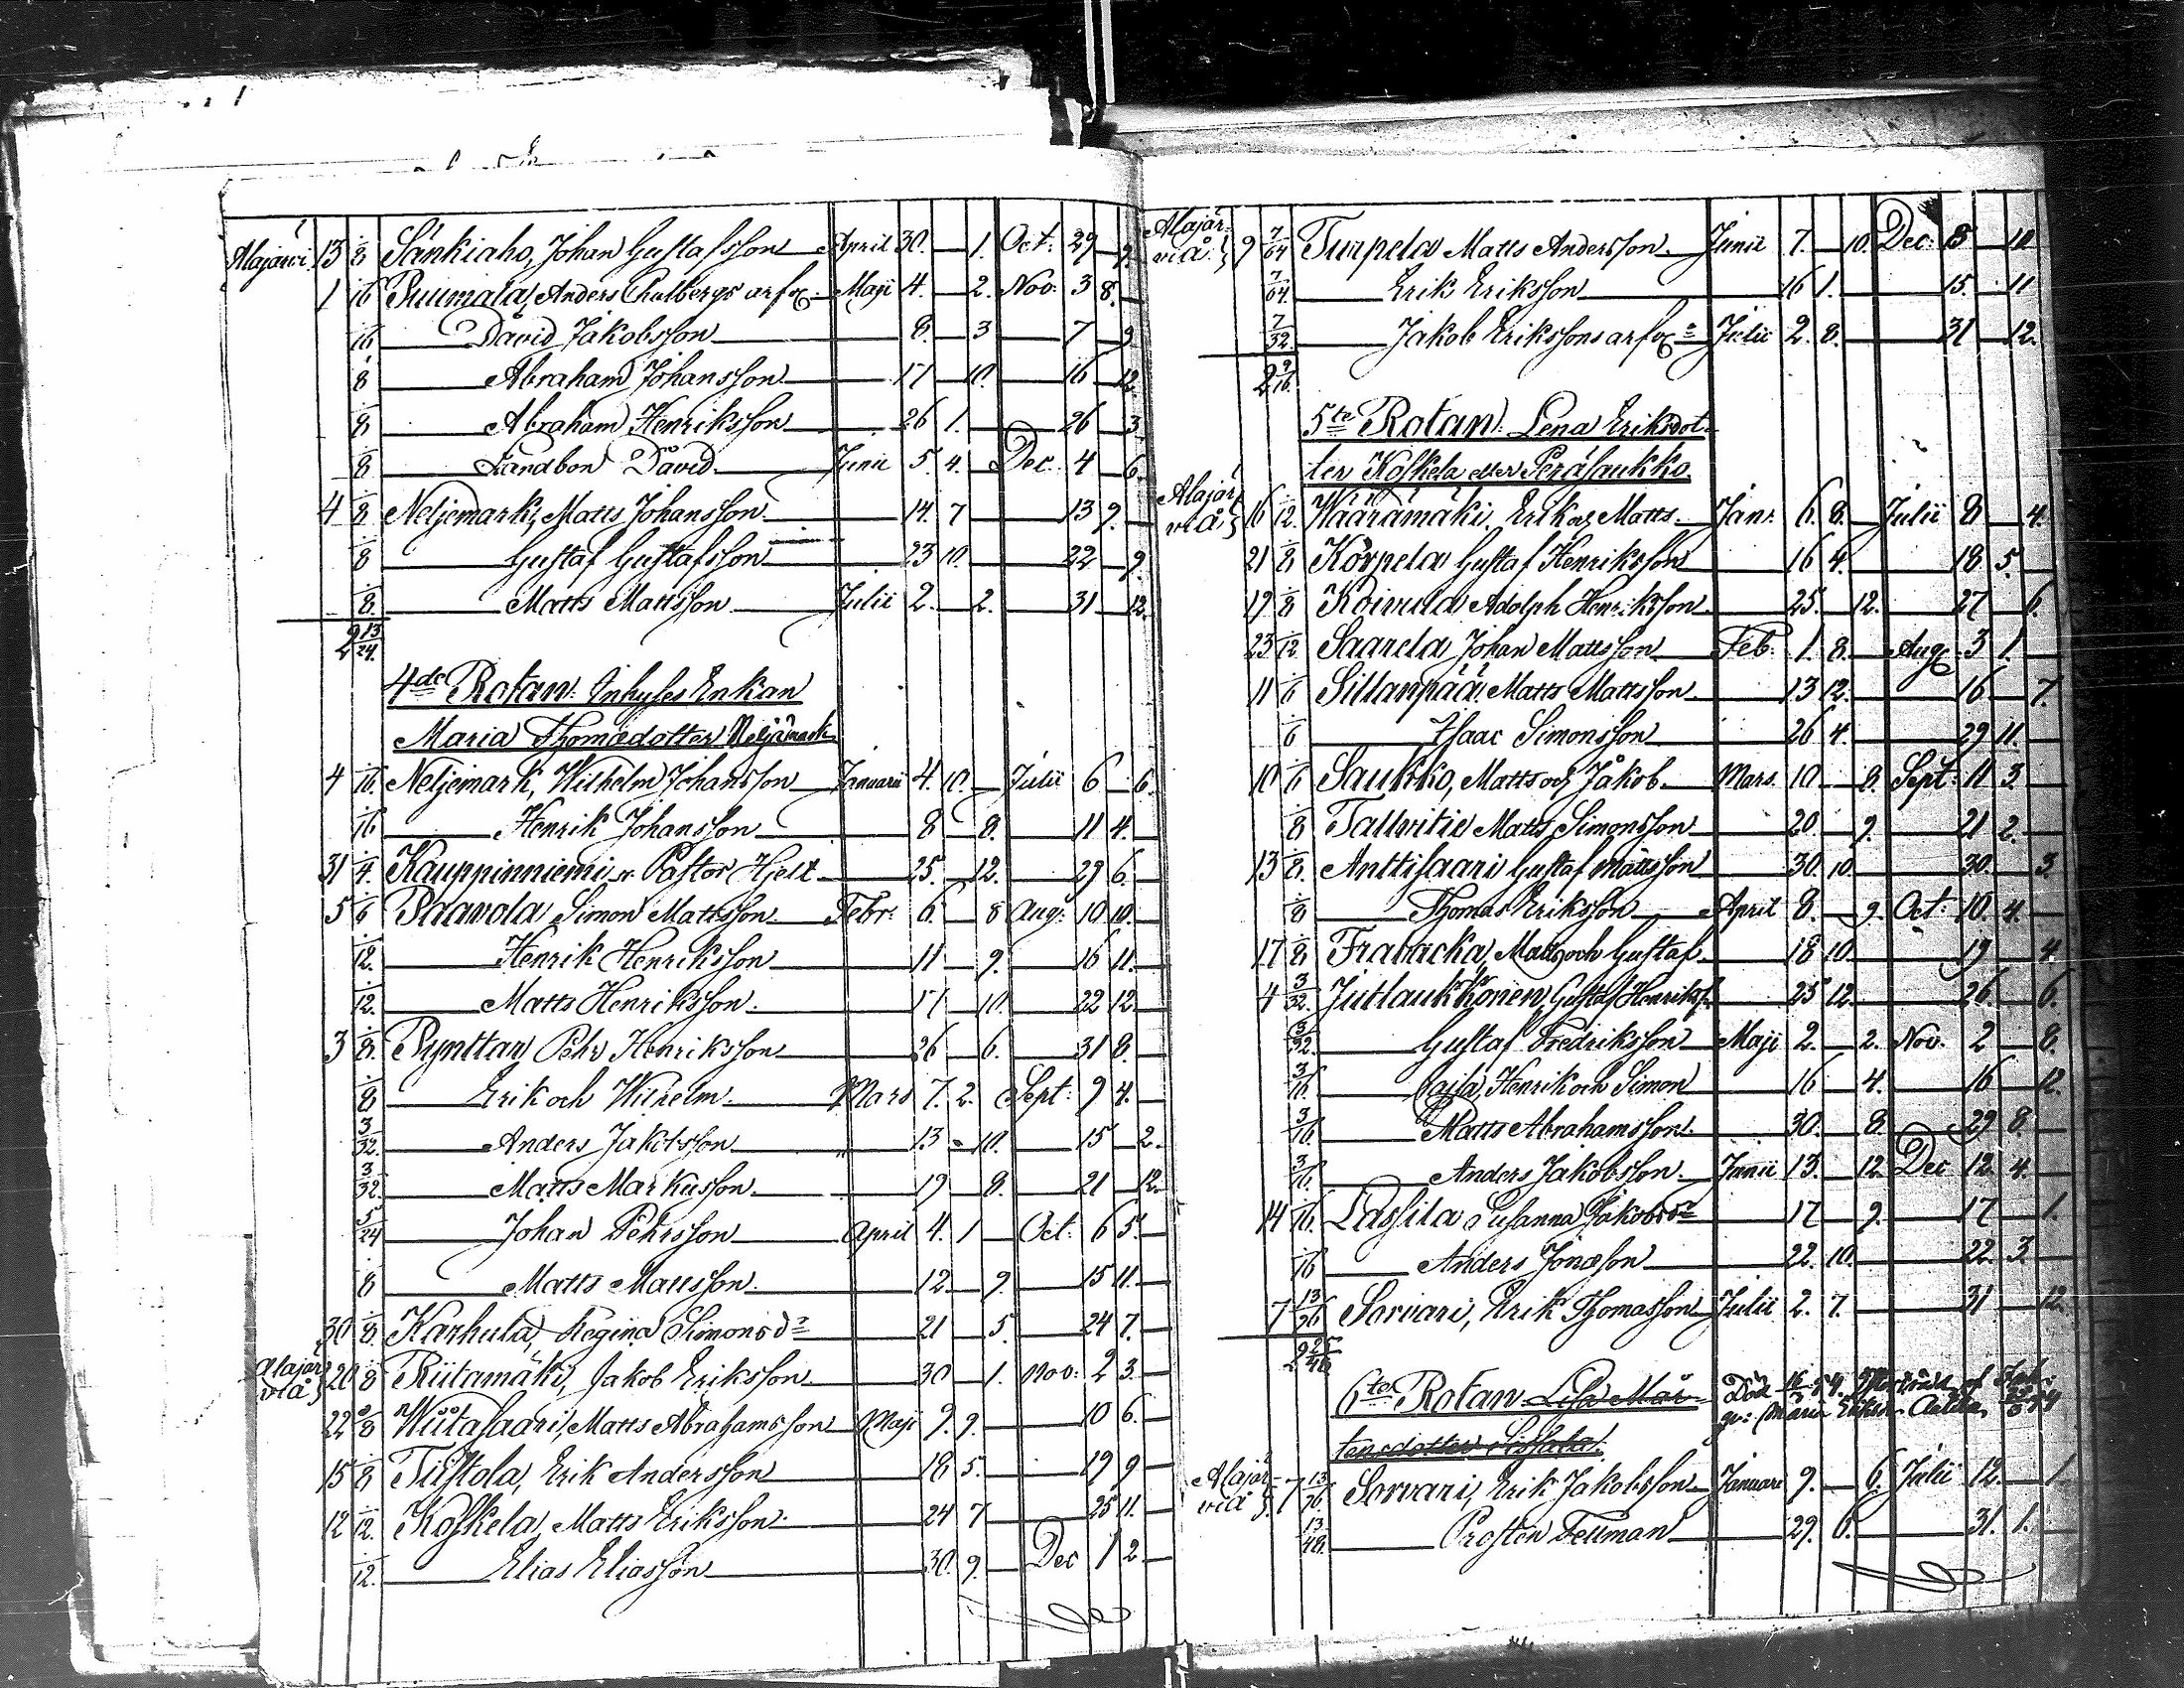 Alajärvi 13 1/8 Sänkiaho, Johan Gustafsson April 30. 1. Oct: 29 9.
1 1/16 Puumala, Anders Chulbergs arfvr. Maji 4. 2. Nov: 3 8.
1/16 David Jakobsson 8. 3 7 9
1/8 Abraham Johansson 17 10. 16 12
1/8 Abraham Henriksson 26 1. 26 3
1/8 Landbon David Junii 5. 4. Dec: 4 6.
4 1/8 Neljemark, Matts Johansson 14. 7 13 9.
1/8 Gustaf Gustafsson 23 10. 22 9.
1/8 Matts Mattsson Julii 2. 2. 31 12.
2 13/24.
4de Rotan: Inhyses Enkan
Maria Thomædotter Neljämark
4 1/16 Neljemark, Wilhelm Johansson Januarii 4. 10. Julii 6 6.
1/16 Henrik Johansson 8 8. 11 4.
31 1/4. Kauppinniemi, Pastor Hjelt 25. 12. 29 6.
5 1/6 Paavola Simon Mattsson Febr: 6. 8 Aug: 10 10.
1/12. Henrik Henriksson 11 9. 16 11.
1/12. Matts Henriksson. 17 10. 22 12.
3 1/8. Pynttäri Pehr Henriksson 26 6. 31 8.
1/8 Erik och Wilhelm. Mars 7. 2. Sept: 9 4.
3/32. Anders Jakobsson 13 10. 15 2.
3/32. Matts Markusson 19 8. 21 12.
5/24 Johan Pehrsson April 4. 1 Oct: 6 5.
1/8 Matts Mattsson. 12 9. 15 11.
30 1/8. Karhula, Regina Simonsdr 21 5. 24 7.
Alajärvi å 20 1/8 Riitamäki, Jakob Eriksson 30 1. Nov: 2 3.
22 1/8 Wiitasaari, Matts Abrahamsson Maji 9. 9. 10 6.
15 1/8 Tiistola, Erik Andersson 18 5. 19 9
12 1/12. Koskela, Matts Eriksson. 24 7 25 11.
1/12. Elias Eliasson 30. 9. Dec 1 2
Alajärvi å 9 7/64 Turpela Matts Andersson Junii 7. 10. Dec: 8 10
7/64. Erik Eriksson 16 1. 15. 11
7/32. Jakob Erikssons arfvr Julii 2. 8. 31 12.
2 9/16.
5te Rotan: Lena Eriksdot-
ter Koskela eller Peräsaukko.
Alajärvi å 16 1/12. Wäärämäki. Erik och Matts Jan: 6. 8. Julii 8 4.
21 1/8 Korpela Gustaf Henriksson 16 4. 18. 5.
19 1/8 Koivula Adolph Henriksson 25. 12. 27 6.
23 1/12. Saarela Johan Mattsson Feb: 1. 8. Aug: 3 1.
11 1/6 Sillanpää Matts Mattsson 13 12. 16 7.
1/6 Isaac Simonsson 26 4. 29 11.
10 1/6 Saukko, Matts och Jakob. Mars. 10 8. Sept: 11 3
1/8 Tallvitie Matts Simonsson 20 9. 21 2.
13 1/8. Anttisaari Gustaf Mattsson 30. 10. 30. 3.
1/8 Thomas Eriksson April 8. 9. Oct: 10. 4.
17 1/8 Frabacka, Matts och Gustaf 18 10. 19 4.
4 3/32. Jutlaukkonen, Gustaf Henrikss. 25 12. 26. 6.
3/32. Gustaf Fredriksson Maji 2. 2. Nov. 2 8.
3/16. Henrik och Simon 16 4. 16 12.
3/16. Matts Abrahamsson. 30. 8. 29 8.
3/16. Anders Jakobsson Junii 13. 12. Dec 12. 4.
14 1/16. Lassila Susanna Jakobsdr 17 9. 17 1.
1/16 Anders Jonæson 22. 10. 22. 3.
7 Sorvari, Erik Thomasson Julii 2. 7. 31 12.
6te Rotan Lisa Mår-
tensdotter
Alajärvi å 7 Sorvari, Erik Jakobsson Januari 9. 6. Julii 12. 1
13/48. Prosten Fellman 29. 6. 31. 1.